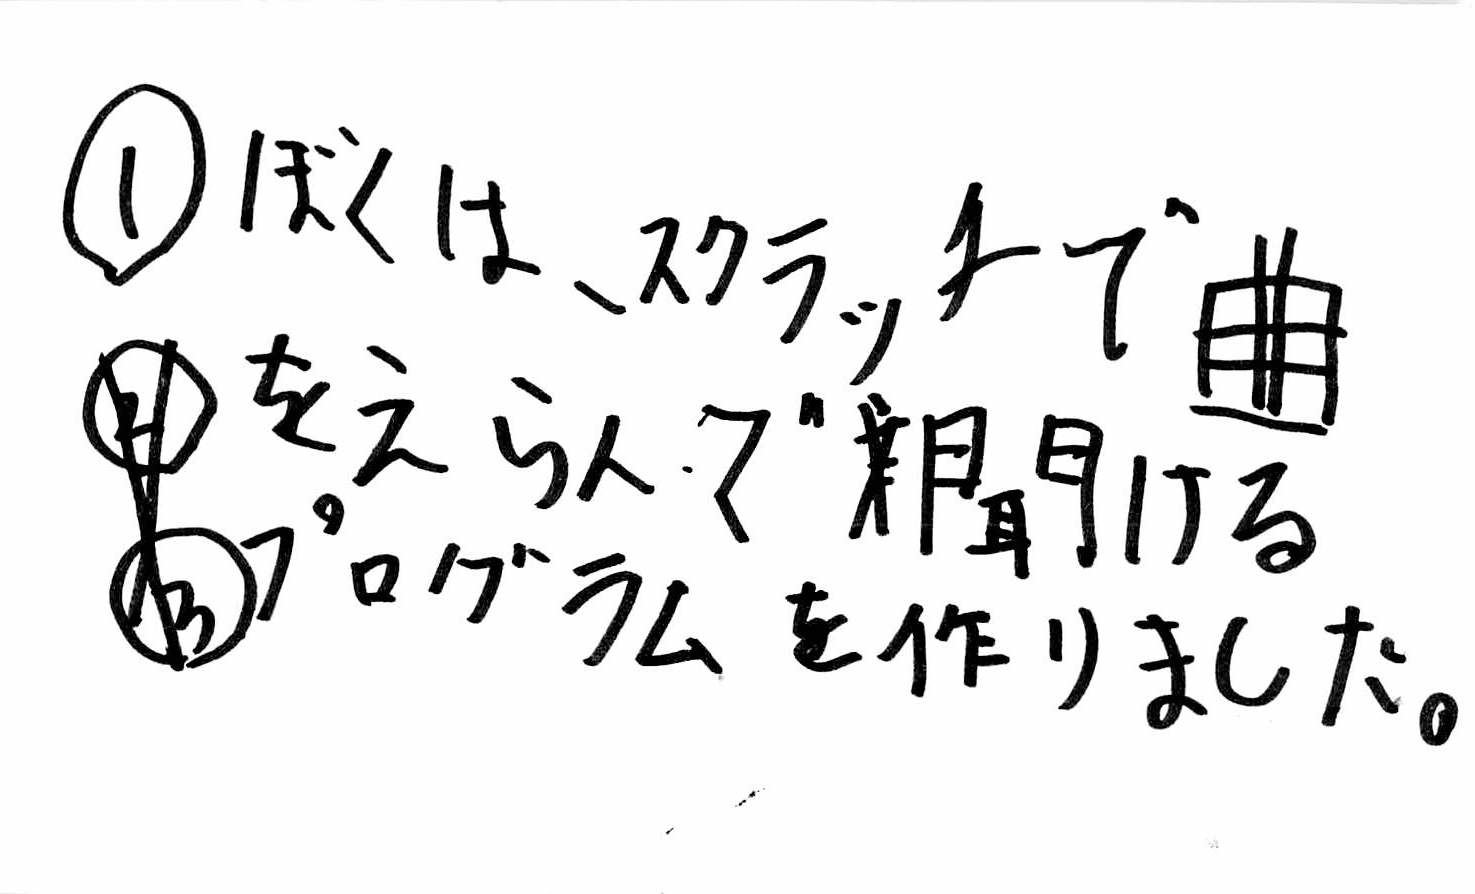 ①ぼくは、スクラッチで曲
をえらんで聞ける
プログラムを作りました。